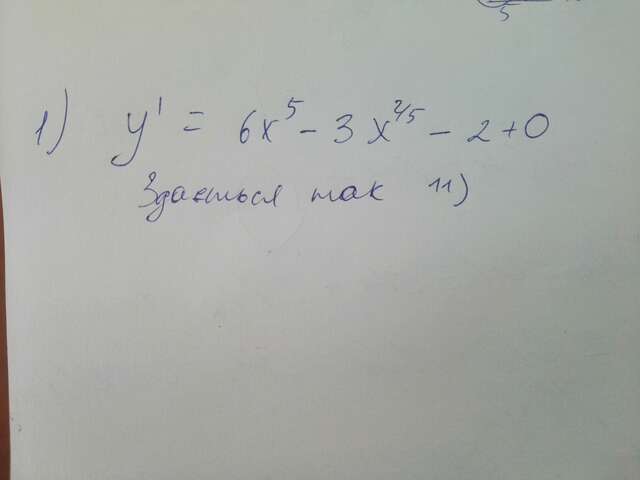 5
1) y' = 6x^5 - 3x^2/5 - 2 + 0
Здається так 11)